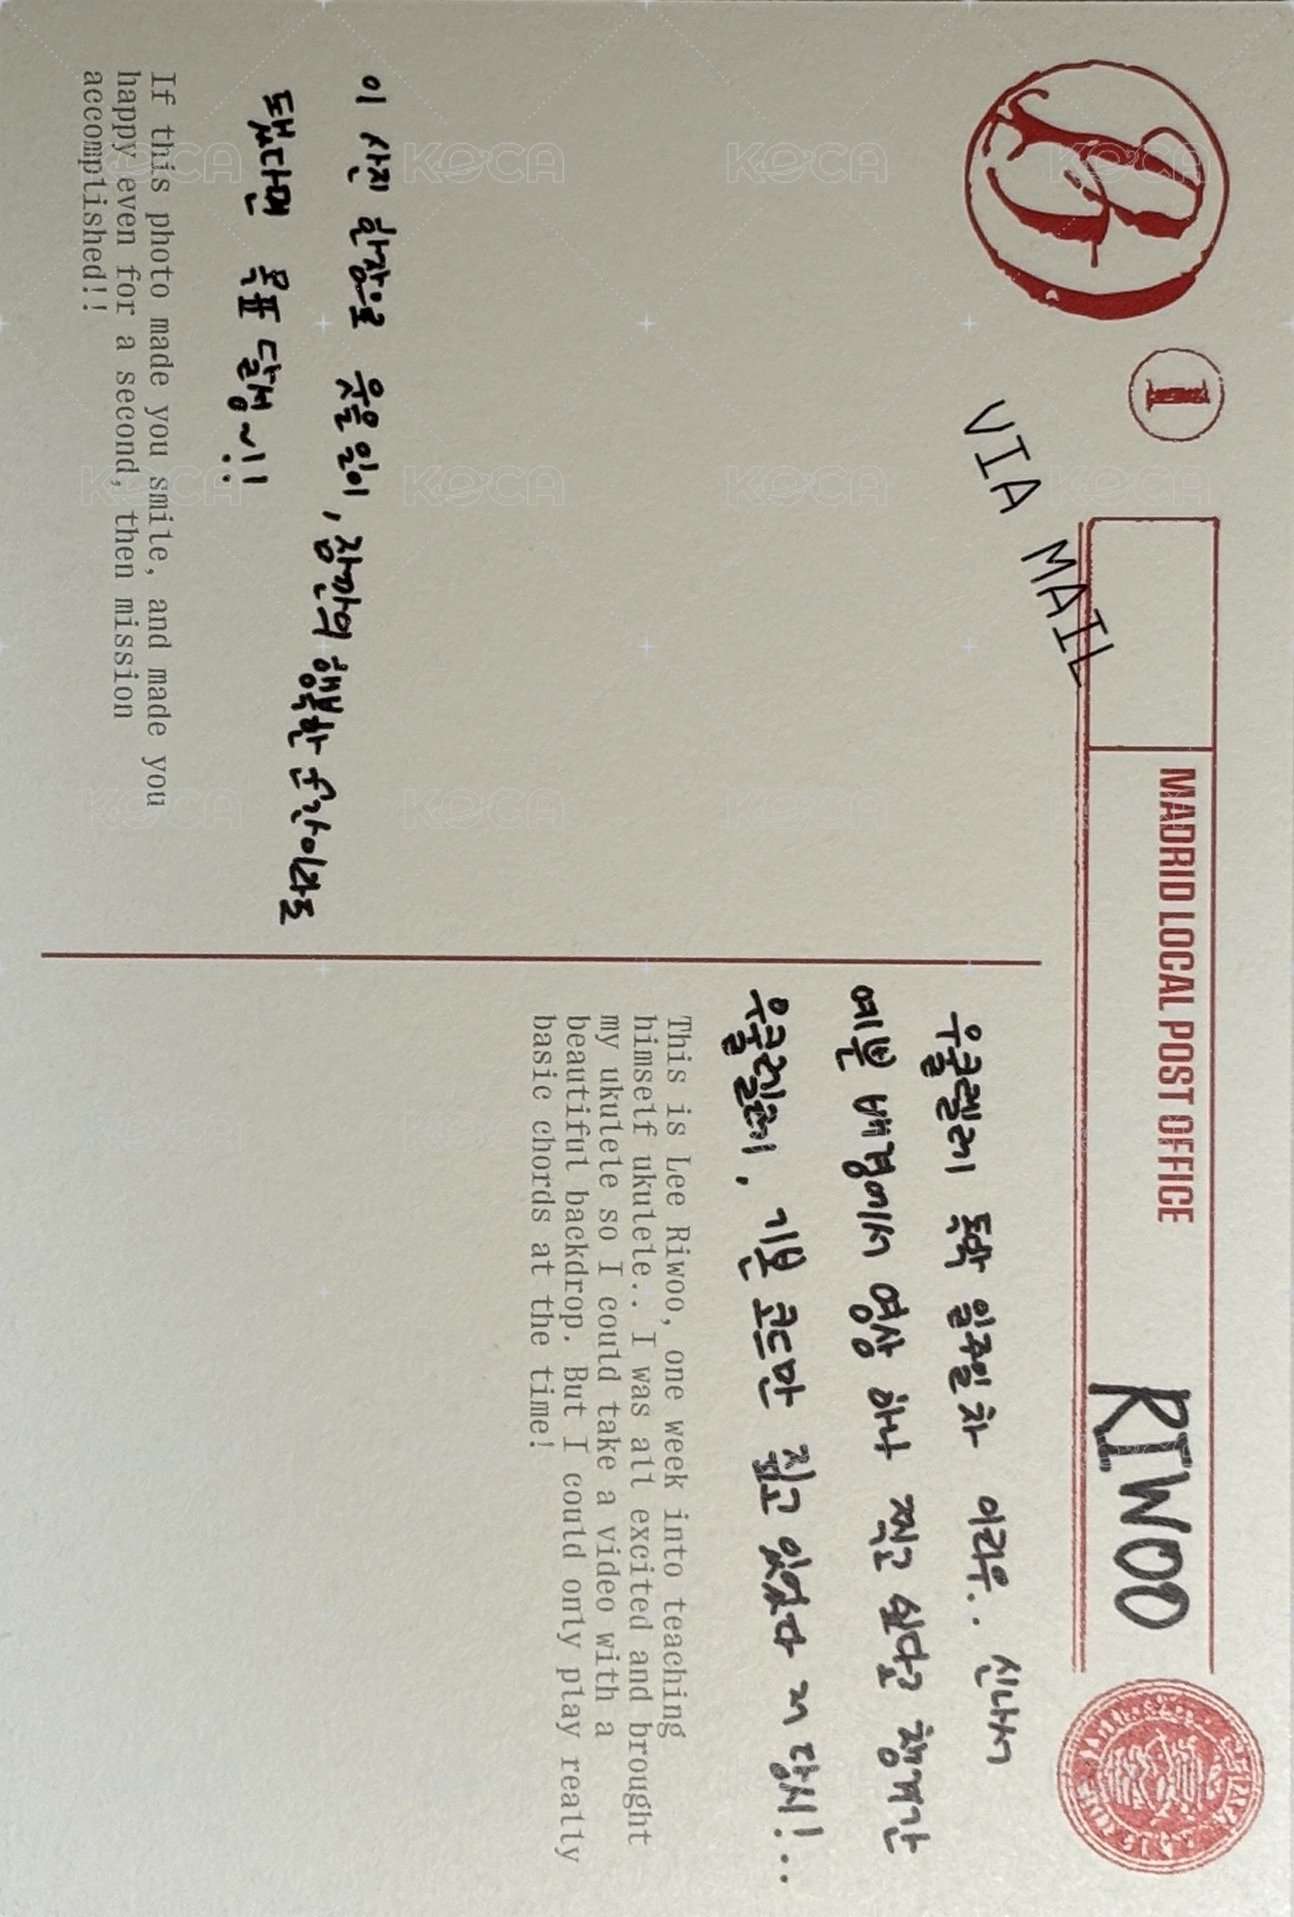 B
1
VIA MAIL
MADRID LOCAL POST OFFICE
RIWOO
이 사진 한장으로 웃을 일이, 잠깐의 행복한 순간이라도
됐다면 목표 달성~!!
If this photo made you smile, and made you
happy even for a second, then mission
accomplished!!
우쿨렐레 독학 일주일차 이리우.. 신나서
예쁜 배경에서 영상 하나 찍고 싶다고 챙겨간
우쿨렐레, 기본 코드만 짚고 있었다 저 당시!..
This is Lee Riwoo, one week into teaching
himself ukulele.. I was all excited and brought
my ukulele so I could take a video with a
beautiful backdrop. But I could only play really
basic chords at the time!
KOCA